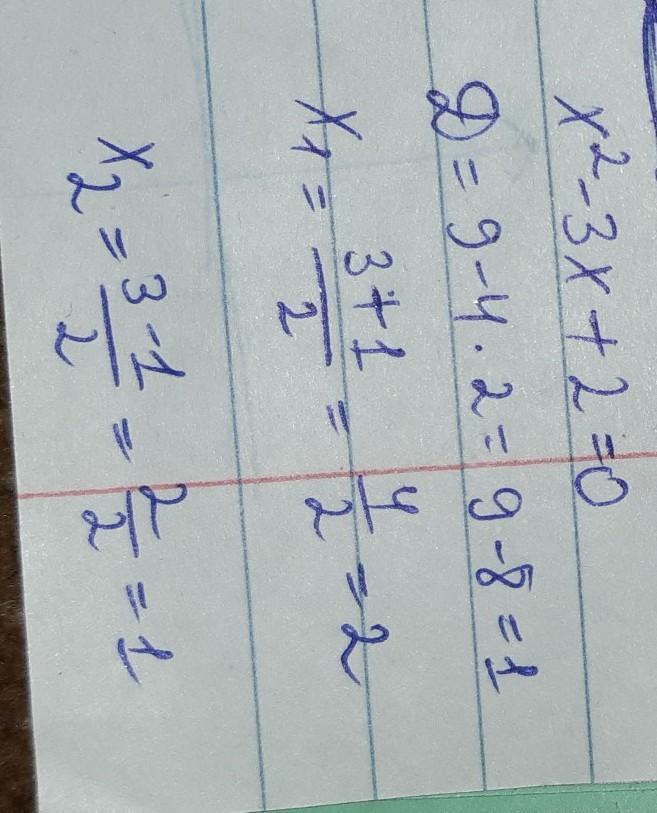 x² - 3x + 2 = 0
D = 9 - 4 · 2 = 9 - 8 = 1
x₁ = (3+1)/2 = 4/2 = 2
x₂ = (3-1)/2 = 2/2 = 1